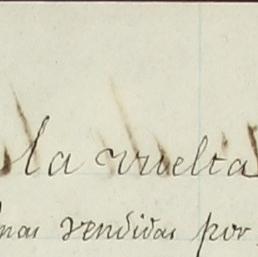 la vuelta
vendidas por